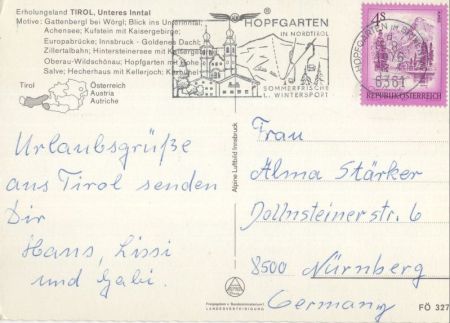 Erholungsland TIROL, Unteres Inntal
Motive: Gattenbergl bei Wörgl; Blick ins Unterinntal;
Achensee; Kufstein mit Kaisergebirge;
Europabrücke; Innsbruck - Goldenes Dachl;
Zillertalbahn; Hintersteinersee mit Kaisergebirge;
Oberau-Wildschönau; Hopfgarten mit Hohe
Salve; Hecherhaus mit Kellerjoch;
Tirol
Österreich
Austria
Autriche
HOPFGARTEN
IN NORDTIROL
SOMMERFRISCHE
WINTERSPORT
HOPFGARTEN IM
6361
4S
REPUBLIK ÖSTERREICH
Urlaubsgrüße
aus Tirol senden
Dir
Hans, Lissi
und Gabi.
Alpine Luftbild Innsbruck
Frau
Alma Stärker
Dollnsteinerstr. 6
8500 Nürnberg
Germany
Freigegeben v. Bundesministerium f.
LANDESVERTEIDIGUNG
FÖ 327